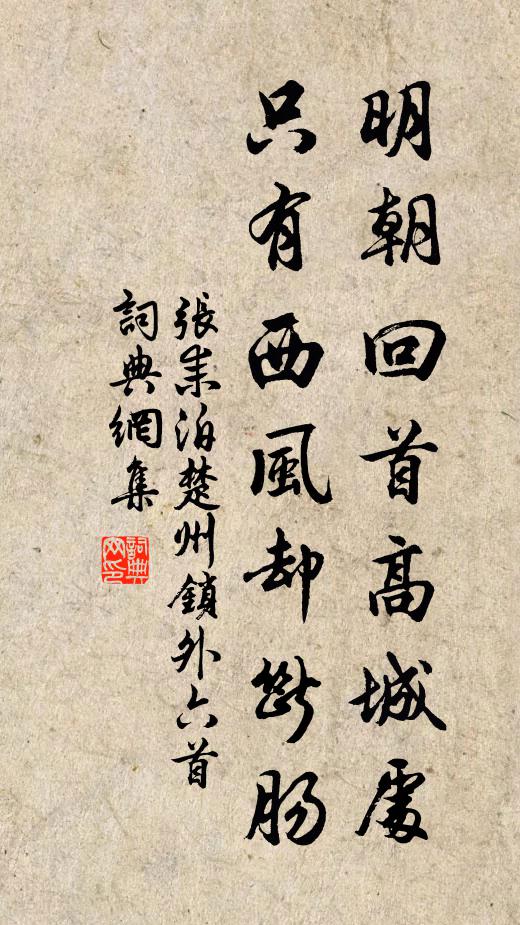 明朝回首高城處
只有西風却斷腸
張耒泊楚州鎖外六首
詞典網集
詞典网印